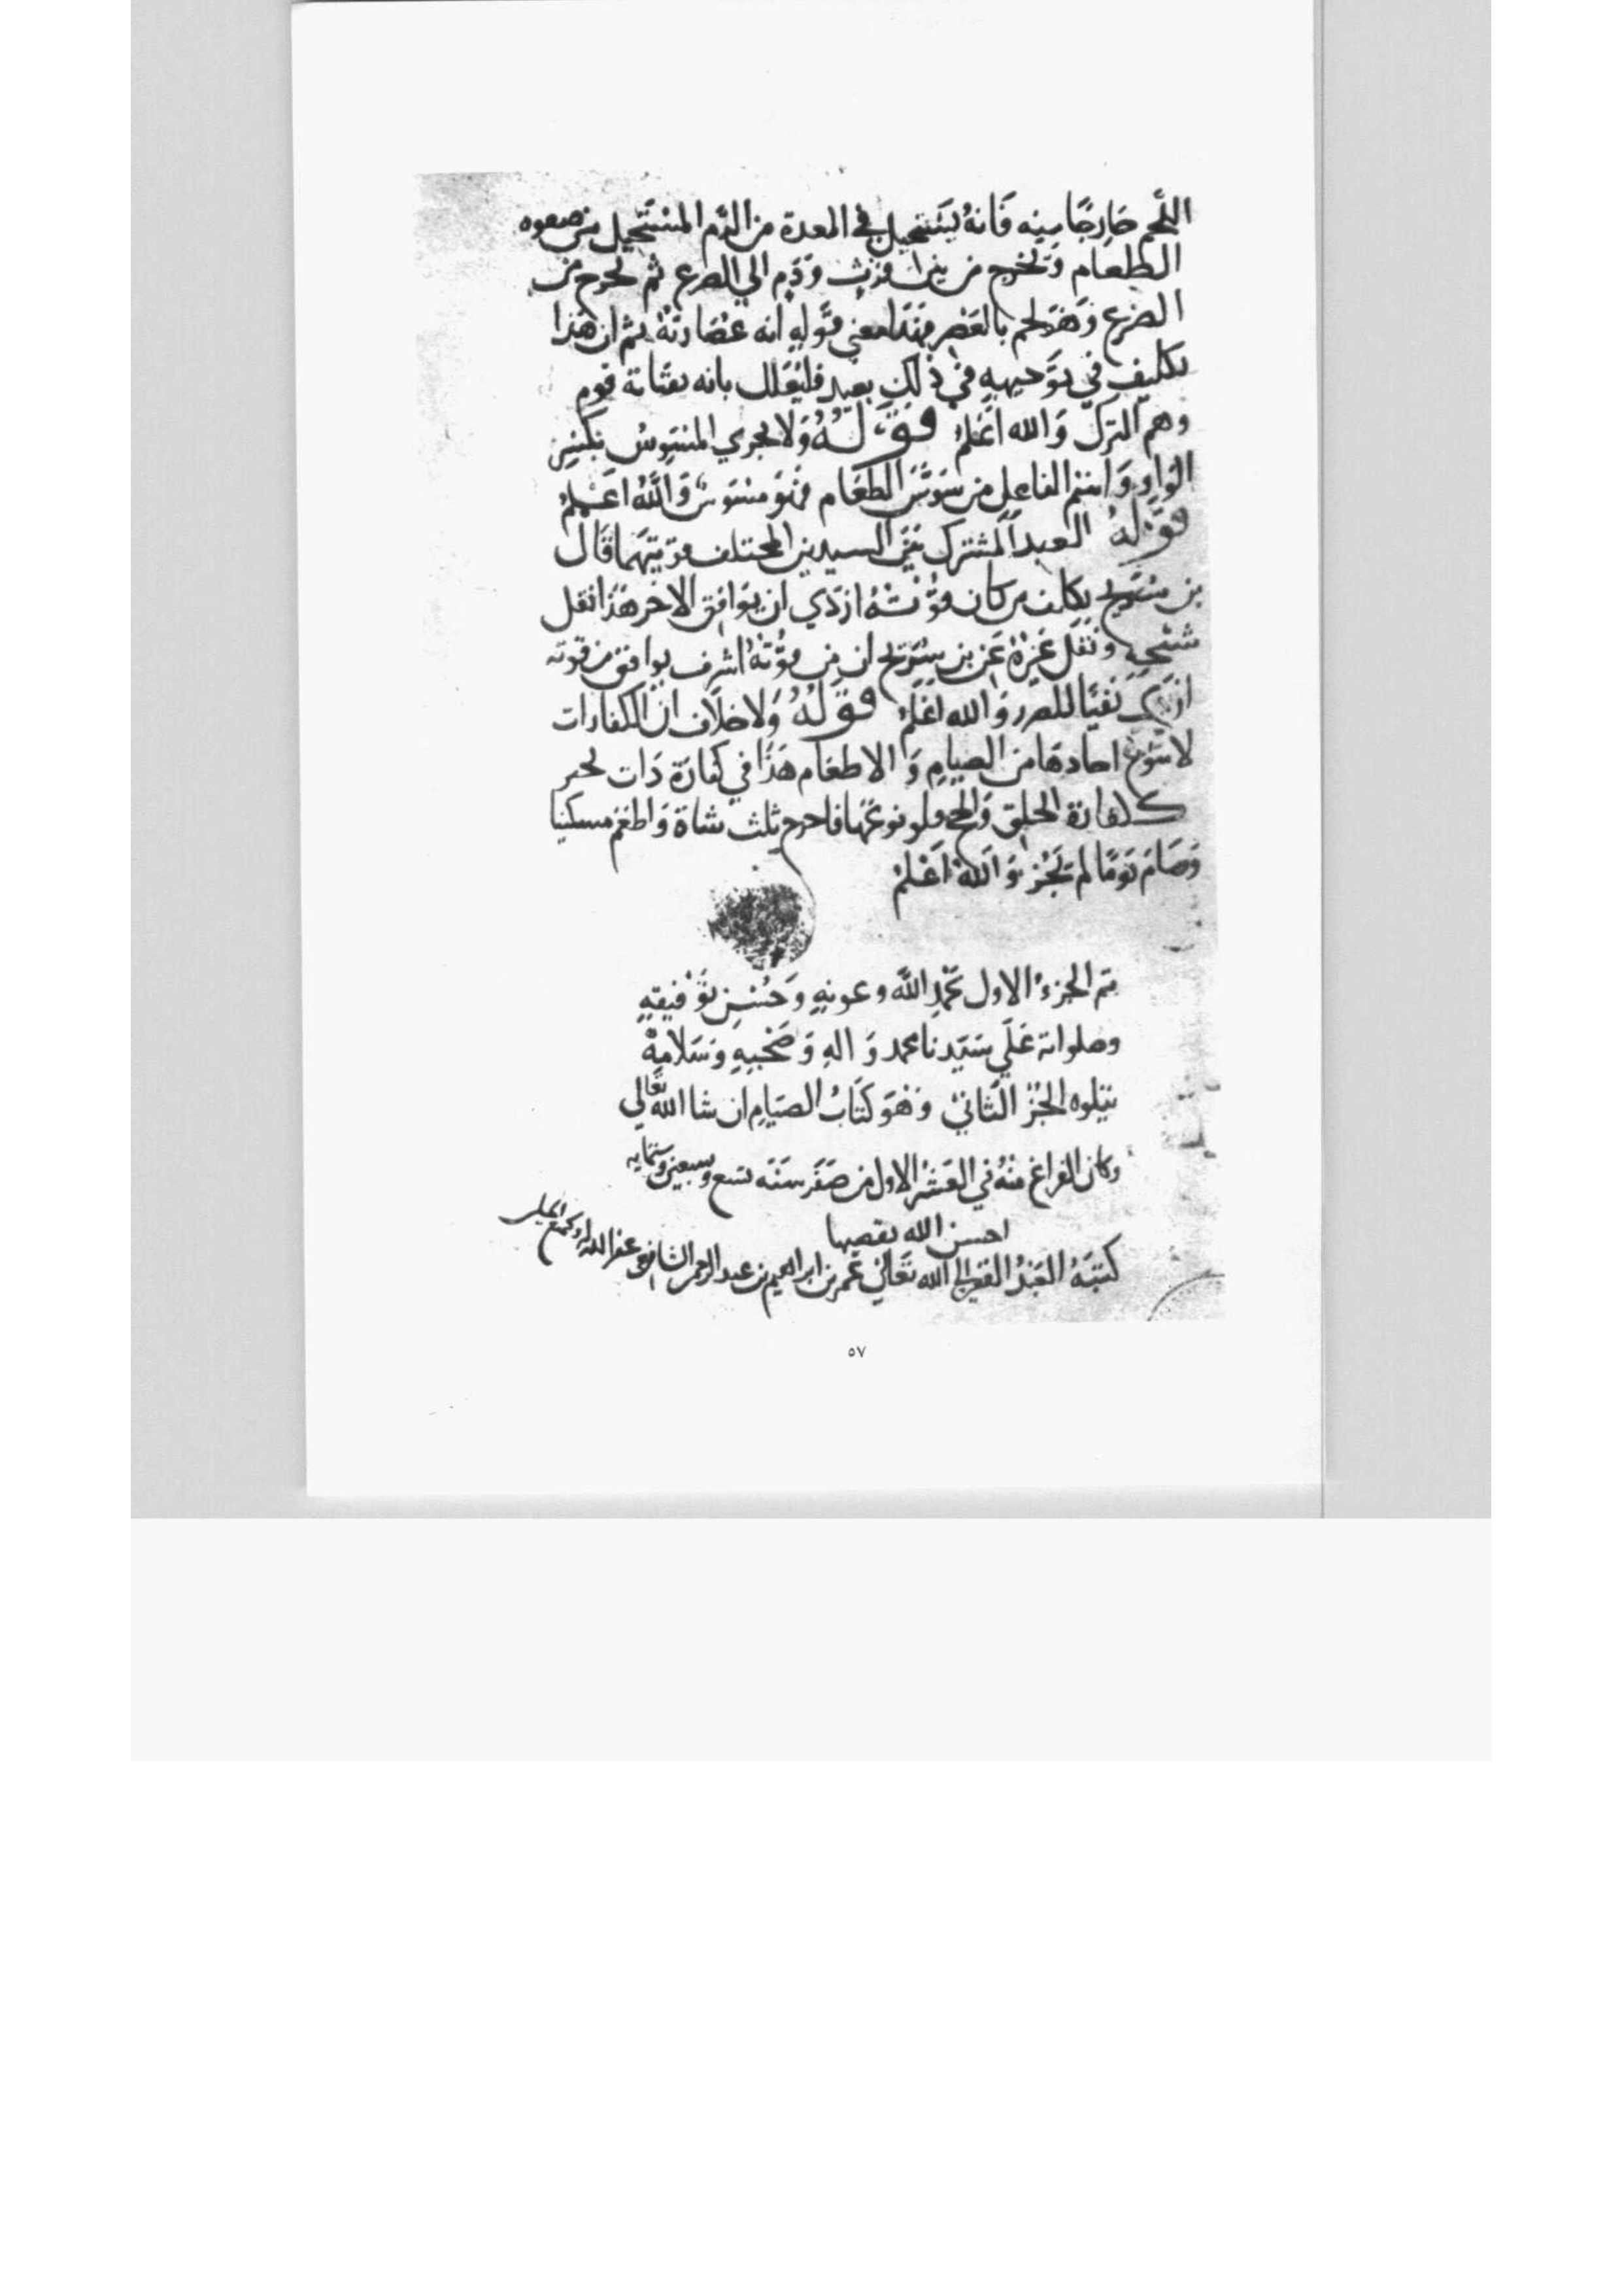 اللحم خارجًا منه فَانهُ يَستحيل في المعدة من الدَّم المستَحيل من صفوه
الطعَام وَيخرج من بين فرث وَدَمٍ الي الضرع ثم يخرج من
الضرع وَهوَ لحم بالعَصر فهَذا معنى قَولهِ انه عُصَارتهُ ثم ان هَذا
تكليف في توَجيههِ في ذلك بعيد فليُعَلل بانه يقتاته قوم
وهم الترك وَالله اَعلمُ قوَلُهُ وَلا يجزي المسَوِسُ بكسِر
الوَاوِ وَاسم الفَاعِل من سَوَّسَ الطعَام فهوَ مسَوسٌ وَاللَّهُ اَعلمُ
قوَلهُ العبد المشترك بَين السيدين المختلف قوتيهمَا قَال
بن سُرَيج يكلف من كان قوُتُهُ اردَي ان يوَافق الاخر هَذا نقل
شيخهِ وَنقلَ غَيرهُ عَن بن سُرَيج ان من قوُتهُ اشرف يوافق من قوته
نفيًا للضرر وَالله اعلمُ قوَلُهُ وَلا خلاَف ان الكفارات
لا احادهَا من الصيَامِ وَالاطعَام هَذا في كفارَة ذات
ككفارة الحلق وَلو نوعهَا فاخرج ثلث شاة وَاطعَم مسكينا
وَصَامَ يَومًا لم يَجُز وَاللهُ اَعْلمُ
تم الجزءُ الاول بحَمدِ اللَّه وعونهِ وَحُسنِ توَفيقهِ
وصلواته عَلَي سَيّدنَا محمد وَالهِ وَصَحْبهِ وَسَلامهْ
يتلوه الجُزُ الثَّانيْ وَهوَ كتَابُ الصيَامِ ان شا الله تعَالي
وكان الفراغ منهُ في العَشر الاول من صَفَر سَنَة تسع وسبعين وستمايه
احسن الله تقضيها
كتبَهُ العَبدُ الفقير الي الله تعَالي عُمر بن ابراهيم بن عبد الرحمن الشافعي عفا الله له
٥٧